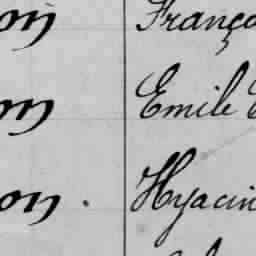 on Franço
on Emile
on. Hyacin